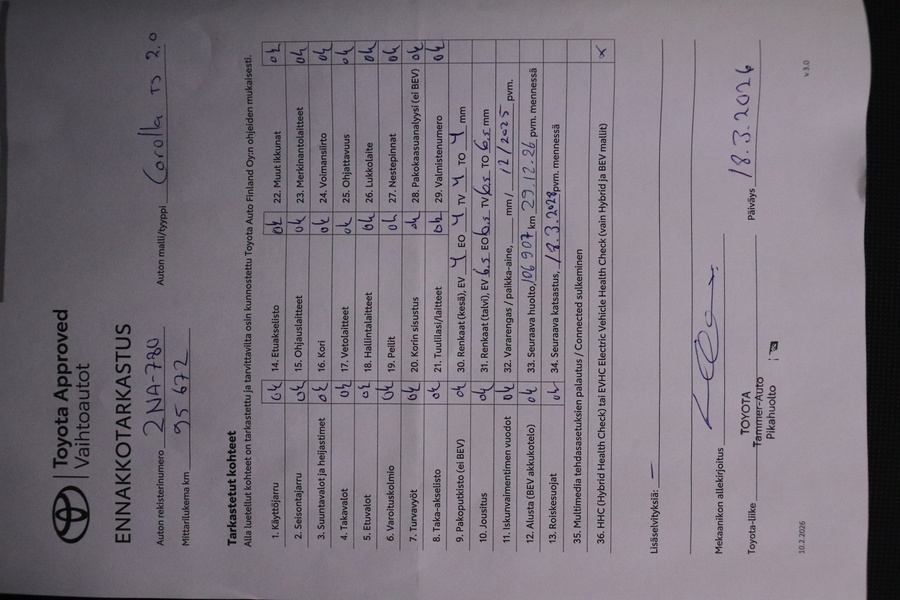 Toyota Approved
Vaihtoautot
ENNAKKOTARKASTUS
Auton rekisterinumero 2NA-780 Auton malli/tyyppi Corolla TS 2.0
Mittarilukema km 95 672
Tarkastetut kohteet
Alla luetellut kohteet on tarkastettu ja tarvittavilta osin kunnostettu Toyota Auto Finland Oy:n ohjeiden mukaisesti.
1. Käyttöjarru ok 14. Etuakselisto ok 22. Muut ikkunat ok
2. Seisontajarru ok 15. Ohjauslaitteet ok 23. Merkinantolaitteet ok
3. Suuntavalot ja heijastimet ok 16. Kori ok 24. Voimansiirto ok
4. Takavalot ok 17. Vetolaitteet ok 25. Ohjattavuus ok
5. Etuvalot ok 18. Hallintalaitteet ok 26. Lukkolaite ok
6. Varoituskolmio ok 19. Peilit ok 27. Nestepinnat ok
7. Turvavyöt ok 20. Korin sisustus ok 28. Pakokaasuanalyysi (ei BEV) ok
8. Taka-akselisto ok 21. Tuulilasi/laitteet ok 29. Valmistenumero ok
9. Pakoputkisto (ei BEV) ok 30. Renkaat (kesä), EV 4 EO 4 TV 4 TO 4 mm
10. Jousitus ok 31. Renkaat (talvi), EV 6.5 EO 6.5 TV 6.5 TO 6.5 mm
11. Iskunvaimentimen vuodot ok 32. Vararengas / paikka-aine, mm / 12/2025 pvm.
12. Alusta (BEV akkukotelo) ok 33. Seuraava huolto, 106 907 km 29.12.26 pvm. mennessä
13. Roiskesuojat ok 34. Seuraava katsastus, 18.3.2028 pvm. mennessä
35. Multimedia tehdasasetuksien palautus / Connected sulkeminen
36. HHC (Hybrid Health Check) tai EVHC Electric Vehicle Health Check (vain Hybrid ja BEV mallit) x
Lisäselvityksiä: —
Mekaanikon allekirjoitus
Toyota-liike TOYOTA Päiväys 18.3.2026
Tammer-Auto
Pikahuolto
10.2.2026 v 3.0